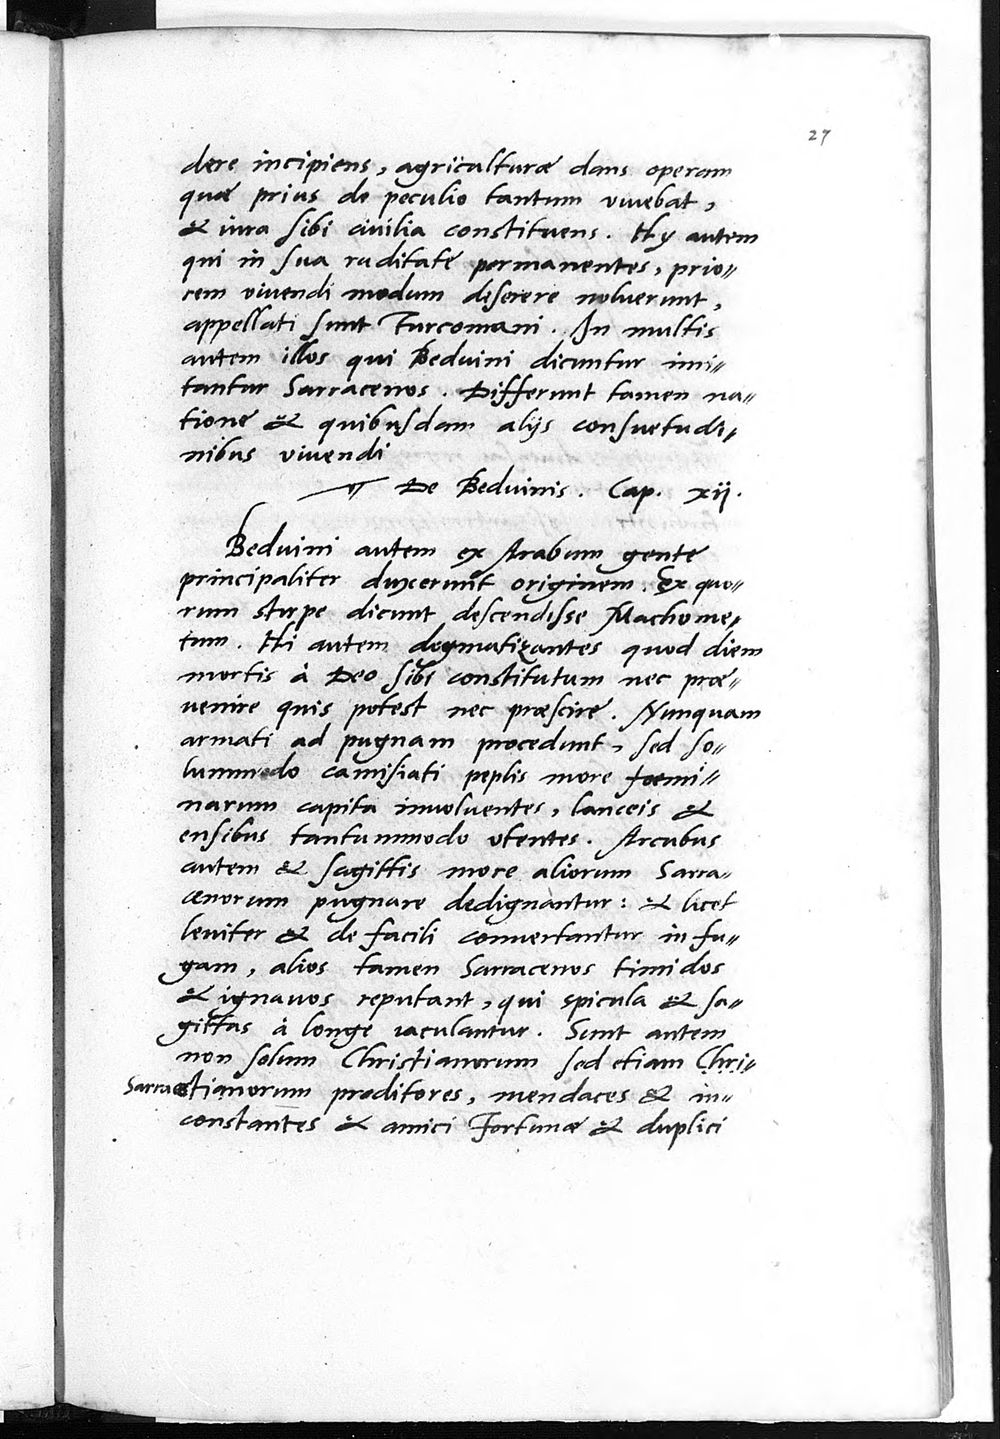 27
dere incipiens, agriculturæ dans operam
quæ prius de peculio tantum viuebat,
& iura sibi ciuilia constituens. Hy autem
qui in sua ruditate permanentes, prio=
rem viuendi modum deserere noluerunt,
appellati sunt Turcomani. In multis
autem illos qui Beduini dicuntur imi=
tantur Sarracenos. Differunt tamen na=
tione & quibusdam alijs consuetudi=
nibus viuendi
De Beduinis. Cap. xij.
Beduini autem ex Arabum gente
principaliter duxerunt originem. Ex quo=
rum stirpe dicunt descendisse Machome=
tum. Hi autem dogmatizantes quod diem
mortis à Deo sibi constitutum nec præ=
uenire quis potest nec præscire. Nunquam
armati ad pugnam procedunt, sed so=
lummodo camisiati peplis more foemi=
narum capita inuoluentes, lanceis &
ensibus tantummodo vtentes. Arcubus
autem & sagittis more aliorum Sarra=
cenorum pugnare dedignantur: & licet
leuiter & de facili conuertantur in fu=
gam, alios tamen Sarracenos timidos
& ignauos reputant, qui spicula & sa=
gittas à longe iaculantur. Sunt autem
non solum Christianorum sed etiam Chri=
Sarrace stianorum proditores, mendaces & in=
constantes & amici Fortunæ & duplici